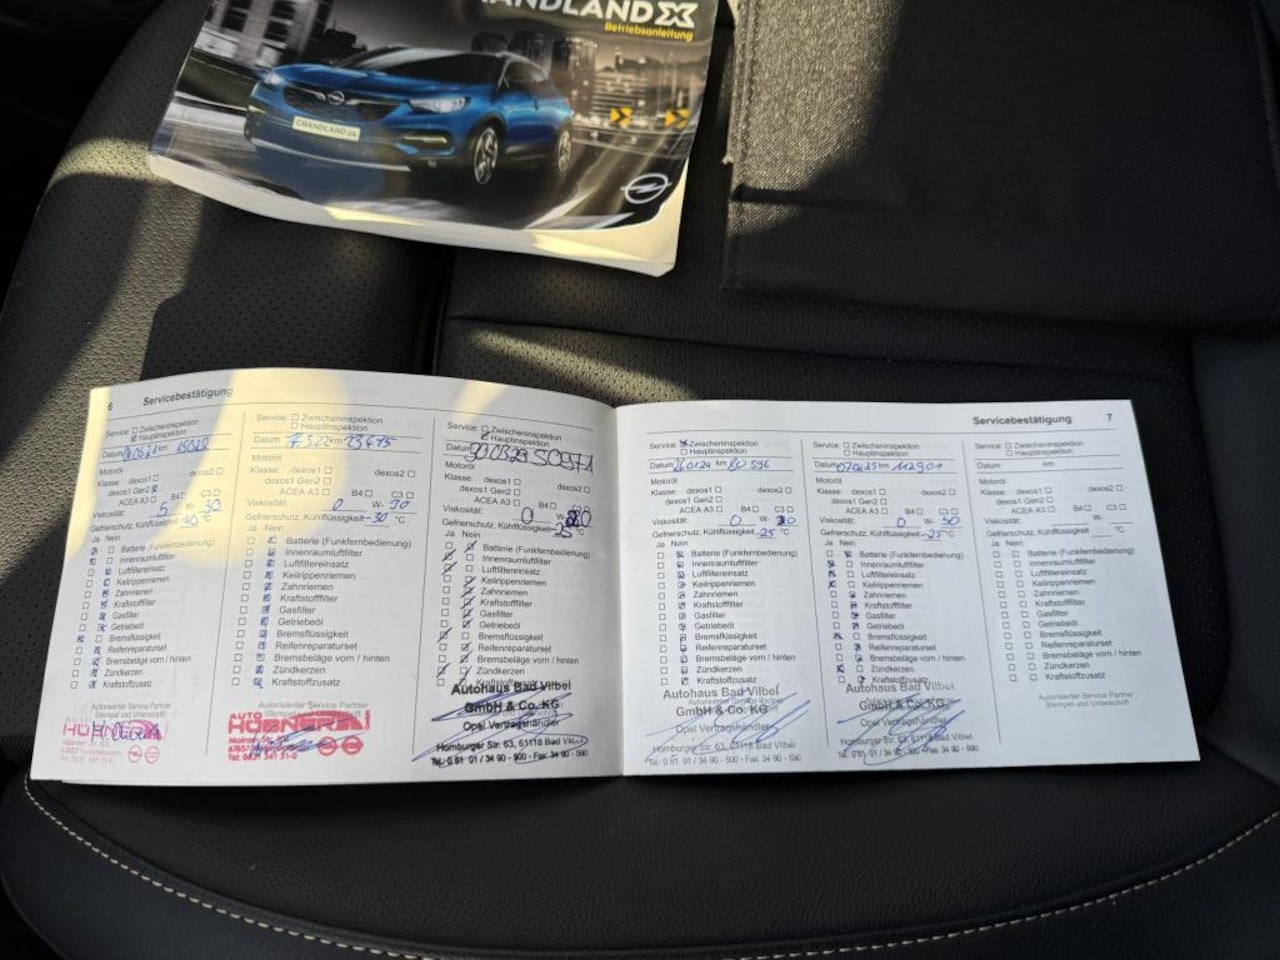 GRANDLAND X
Betriebsanleitung
GRANDLAND X
6 Servicebestätigung
Service: Zwischeninspektion
Hauptinspektion
Datum km 15020
Motoröl
Klasse: dexos1 dexos2
dexos1 Gen2
ACEA A3 B4 C3
Viskosität: 5 W- 30
Gefrierschutz, Kühlflüssigkeit -40 °C
Ja Nein
Batterie (Funkfernbedienung)
Innenraumluftfilter
Luftfiltereinsatz
Keilrippenriemen
Zahnriemen
Kraftstofffilter
Gasfilter
Getriebeöl
Bremsflüssigkeit
Reifenreparaturset
Bremsbeläge vorn / hinten
Zündkerzen
Kraftstoffzusatz
Autorisierter Service Partner
Stempel und Unterschrift
Service: Zwischeninspektion
Hauptinspektion
Datum km
Motoröl
Klasse: dexos1 dexos2
dexos1 Gen2
ACEA A3 B4 C3
Viskosität: 0 W-
Gefrierschutz, Kühlflüssigkeit -30 °C
Ja Nein
Batterie (Funkfernbedienung)
Innenraumluftfilter
Luftfiltereinsatz
Keilrippenriemen
Zahnriemen
Kraftstofffilter
Gasfilter
Getriebeöl
Bremsflüssigkeit
Reifenreparaturset
Bremsbeläge vorn / hinten
Zündkerzen
Kraftstoffzusatz
AUTO
Service: Zwischeninspektion
Hauptinspektion
Datum
Motoröl
Klasse: dexos1
dexos1 Gen2 dexos2
ACEA A3 B4 C3
Viskosität: 0 W-
Gefrierschutz, Kühlflüssigkeit -25 °C
Ja Nein
Batterie (Funkfernbedienung)
Innenraumluftfilter
Luftfiltereinsatz
Keilrippenriemen
Zahnriemen
Kraftstofffilter
Gasfilter
Getriebeöl
Bremsflüssigkeit
Reifenreparaturset
Bremsbeläge vorn / hinten
Zündkerzen
Kraftstoffzusatz
Autohaus Bad Vilbel
GmbH & Co. KG
Opel Vertragshändler
Homburger Str. 63, 61118 Bad Vilbel
Tel.: 0 61 01 / 34 90 - 500 - Fax: 34 90 - 590
Servicebestätigung 7
Service: Zwischeninspektion
Hauptinspektion
Datum 26.01.24 km 80 596
Motoröl
Klasse: dexos1 dexos2
dexos1 Gen2
ACEA A3 B4 C3
Viskosität: 0 W-
Gefrierschutz, Kühlflüssigkeit -25 °C
Ja Nein
Batterie (Funkfernbedienung)
Innenraumluftfilter
Luftfiltereinsatz
Keilrippenriemen
Zahnriemen
Kraftstofffilter
Gasfilter
Getriebeöl
Bremsflüssigkeit
Reifenreparaturset
Bremsbeläge vorn / hinten
Zündkerzen
Kraftstoffzusatz
Autohaus Bad Vilbel
GmbH & Co. KG
Opel Vertragshändler
Homburger Str. 63, 61118 Bad Vilbel
Tel.: 0 61 01 / 34 90 - 500 - Fax: 34 90 - 590
Service: Zwischeninspektion
Hauptinspektion
Datum km 112901
Motoröl
Klasse: dexos1 dexos2
dexos1 Gen2
ACEA A3 B4 C3
Viskosität: 0 W-
Gefrierschutz, Kühlflüssigkeit -25 °C
Ja Nein
Batterie (Funkfernbedienung)
Innenraumluftfilter
Luftfiltereinsatz
Keilrippenriemen
Zahnriemen
Kraftstofffilter
Gasfilter
Getriebeöl
Bremsflüssigkeit
Reifenreparaturset
Bremsbeläge vorn / hinten
Zündkerzen
Kraftstoffzusatz
Autohaus Bad Vilbel
GmbH & Co. KG
Opel Vertragshändler
Homburger Str. 63, 61118 Bad Vilbel
Tel.: 0 61 01 / 34 90 - 500 - Fax: 34 90 - 590
Service: Zwischeninspektion
Hauptinspektion
Datum km
Motoröl
Klasse: dexos1 dexos2
dexos1 Gen2
ACEA A3 B4 C3
Viskosität: W-
Gefrierschutz, Kühlflüssigkeit °C
Ja Nein
Batterie (Funkfernbedienung)
Innenraumluftfilter
Luftfiltereinsatz
Keilrippenriemen
Zahnriemen
Kraftstofffilter
Gasfilter
Getriebeöl
Bremsflüssigkeit
Reifenreparaturset
Bremsbeläge vorn / hinten
Zündkerzen
Kraftstoffzusatz
Autorisierter Service Partner
Stempel und Unterschrift